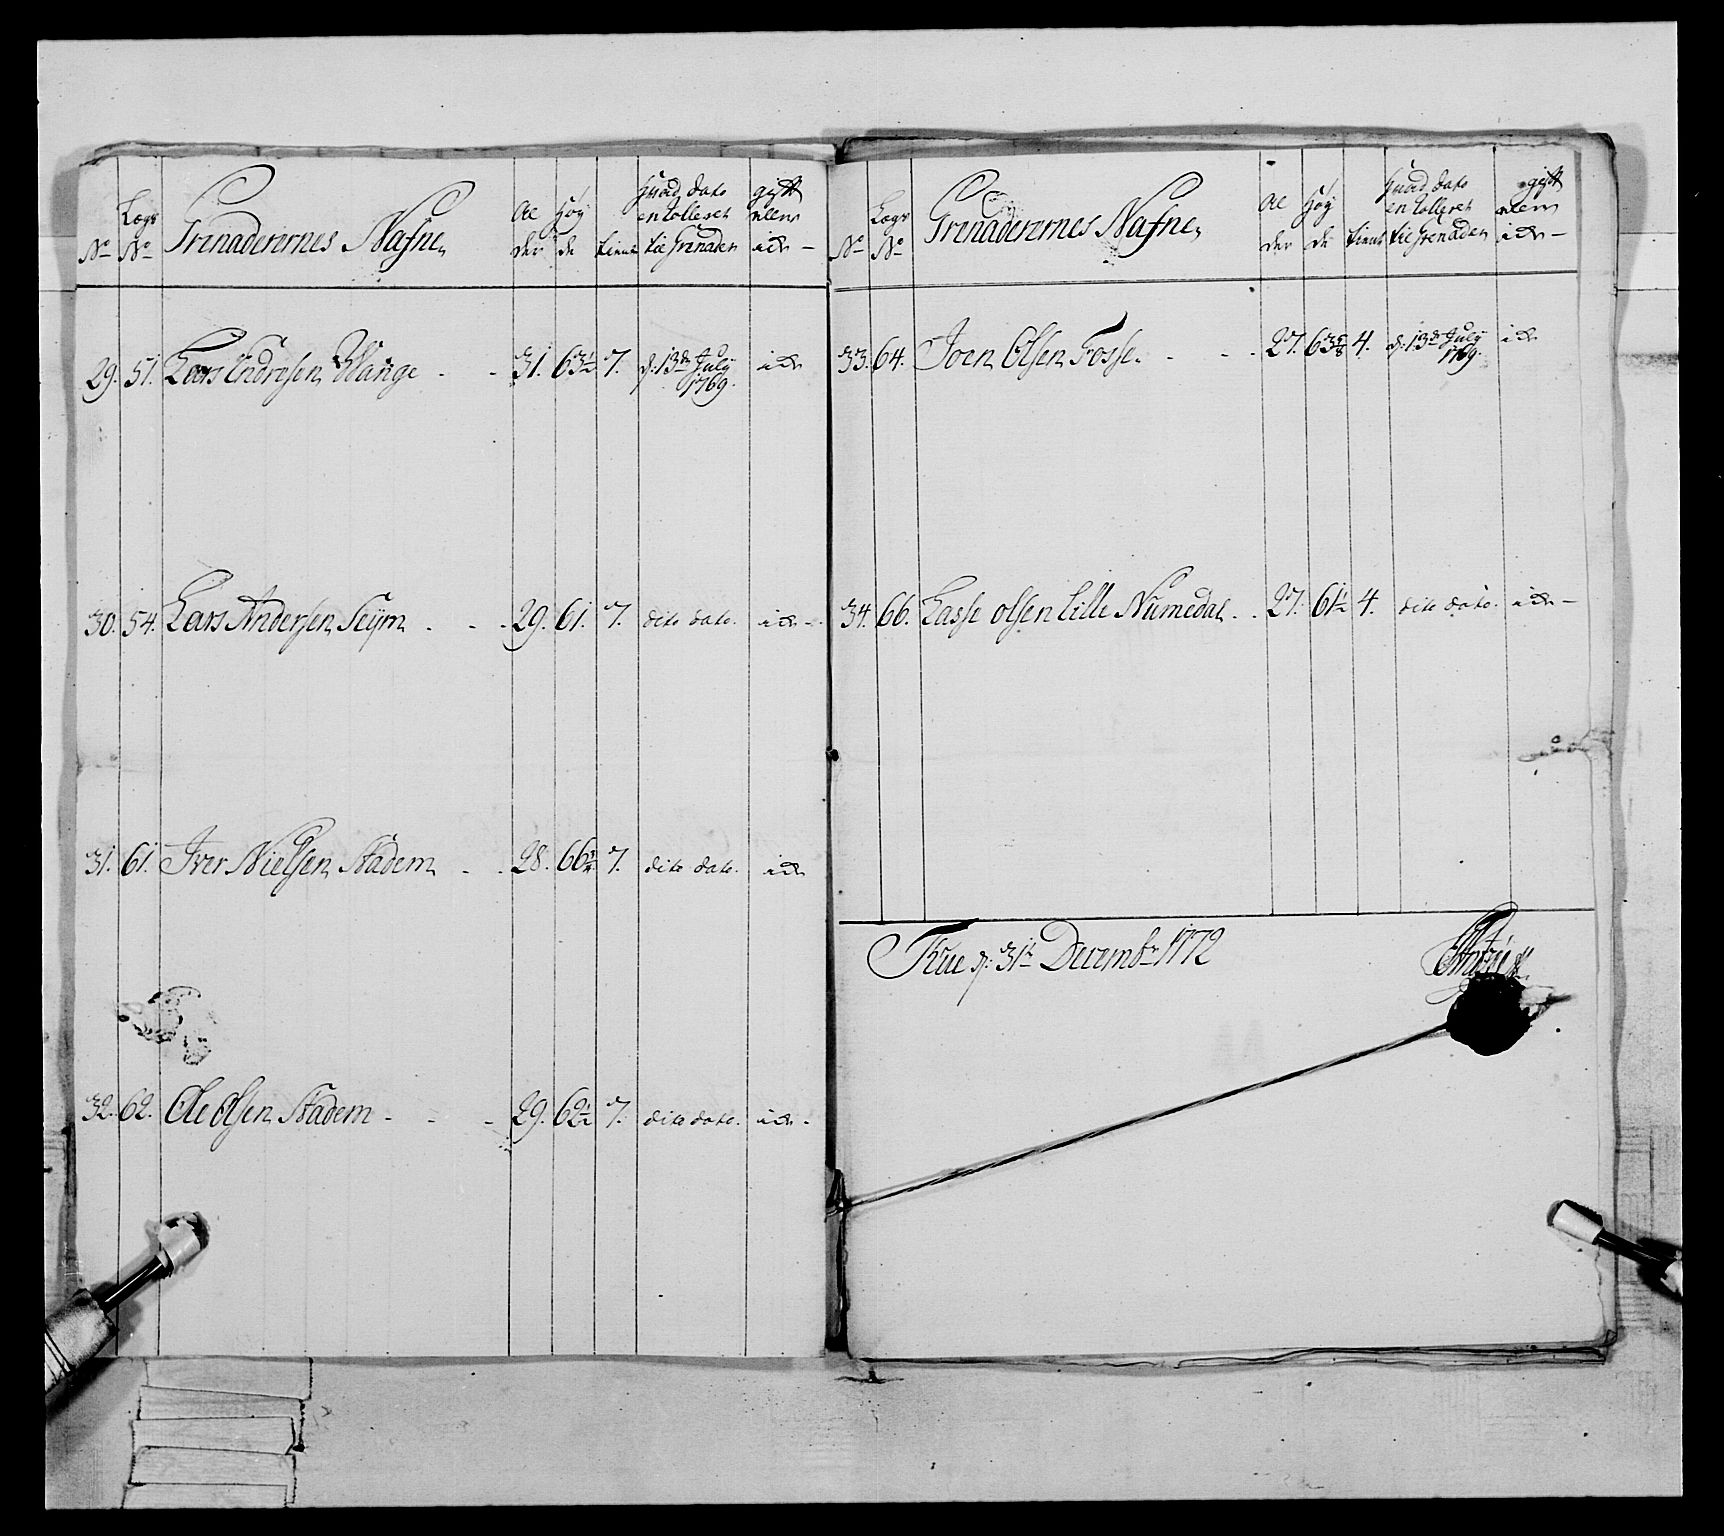 No Legs No Grenaderernes Nafne, Al der Høy de tient hvad dato enrolleret til Grenader gift eller ide
29. 51. Lars Endresen Wange - - 31. 63½ 7. d: 13de July 1769. ide
30. 54. Lars Andersen Seÿm - - - 29. 61. 7. dito dato. ide -
31. 61. Iver Nielsen Nadem - - 28. 66¾ 7. dito dato. ide
32. 62. Ole Olsen Nadem - - - 29. 62½ 7. dito dato. ide -
No Legs No Grenaderernes Nafne, Al der Høy de tient hvad dato enrolleret til Grenader gift eller ide -
33. 64. Joen Olsen Fosse - - - 27. 63⅝ 4. d: 13de July 1769. ide
34. 66. Lasse olsen Lille Numedal - - 27. 61½ 4. dito dato. ide -
Frue d: 31te Decembr 1772